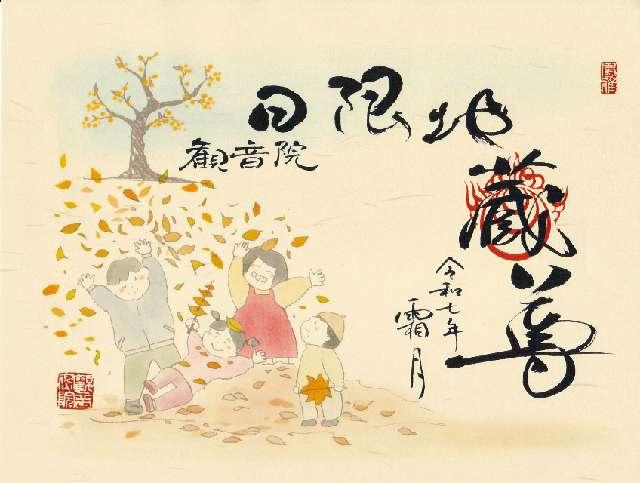 日限地蔵尊
観音院
令和七年
霜月